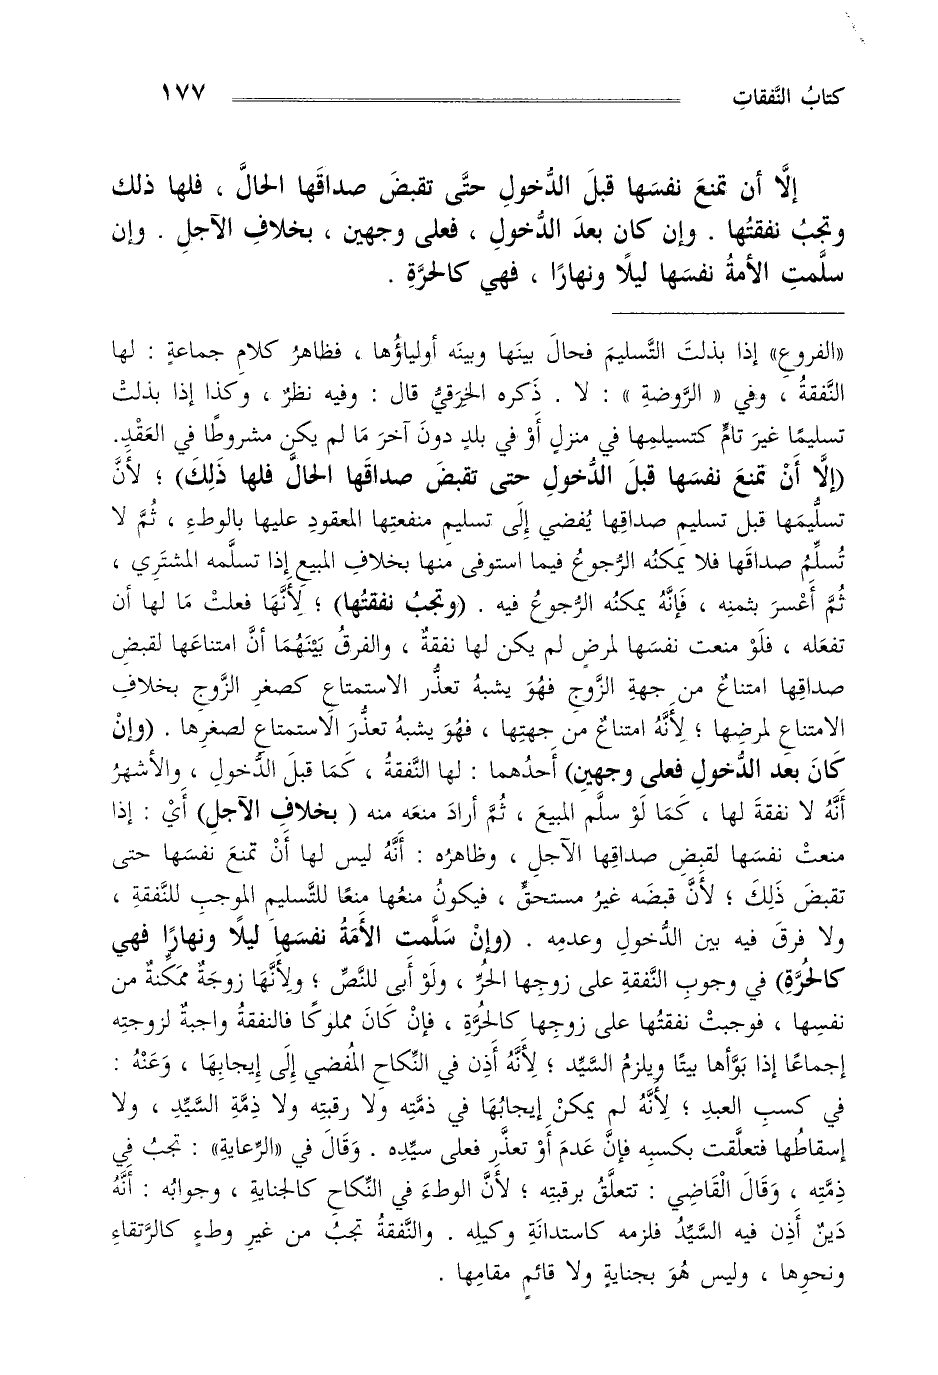 كتابُ النَّفقاتِ ١٧٧
إلَّا أن تمنعَ نفسَها قبلَ الدُّخولِ حتَّى تقبضَ صداقَها الحالَّ ، فلها ذلك
وتجبُ نفقتُها . وإن كان بعدَ الدُّخولِ ، فعلى وجهين ، بخلافِ الآجلِ . وإن
سلَّمتِ الأمةُ نفسَها ليلًا ونهارًا ، فهي كالحرَّةِ .
«الفروعِ» إذا بذلتَ التَّسليمَ فحالَ بينَها وبينَه أولياؤُها ، فظاهرُ كلامِ جماعةٍ : لها
النَّفقةُ ، وفي « الرَّوضةِ » : لا . ذَكره الخِرَقيُّ قال : وفيه نظرٌ ، وَكذا إذا بذلتْ
تسليمًا غيرَ تامٍّ كتسيلمِها في منزلٍ أَوْ في بلدٍ دونَ آخرَ مَا لم يكن مشروطًا في العَقْدِ.
(إلَّا أَنْ تمنعَ نفسَها قبلَ الدُّخولِ حتى تقبضَ صداقَها الحالَّ فلها ذَلِكَ) ؛ لأنَّ
تسلُّيمَها قبل تسليمِ صداقِها يُفضي إلَى تسليمِ منفعتِها المعقودِ عليها بالوطءِ ، ثُمَّ لا
تُسلَّمُ صداقَها فلا يمكنُه الرُّجوعُ فيما استوفى منها بخلافِ المبيعِ إذا تسلَّمه المشترِي ،
ثُمَّ أَعْسرَ بثمنِه ، فَإِنَّهُ يمكنُه الرُّجوعُ فيه . (وتجبُ نفقتُها) ؛ لِأَنَّهَا فعلتْ مَا لها أن
تفعَله ، فلَوْ منعت نفسَها لمرضٍ لم يكن لها نفقةٌ ، والفرقُ بَيْنَهُمَا أنَّ امتناعَها لقبضِ
صداقِها امتناعٌ من جهةِ الزَّوجِ فهُوَ يشبهُ تعذُّر الاستمتاعِ كصغرِ الزَّوجِ بخلافِ
الامتناعِ لمرضِها ؛ لِأَنَّهُ امتناعٌ من جهتِها ، فهُوَ يشبهُ تعذُّرَ الاستمتاعِ لصغرِها . (وإنْ
كَانَ بعد الدُّخولِ فعلى وجهينِ) أحدُهما : لها النَّفقةُ ، كَمَا قبلَ الدُّخولِ ، والأشهرُ
أنَّهُ لا نفقةَ لها ، كَمَا لَوْ سلَّم المبيعَ ، ثُمَّ أرادَ منعَه منه ( بخلافِ الآجلِ) أيْ : إذا
منعتْ نفسَها لقبضِ صداقِها الآجلِ ، وظاهرُه : أنَّهُ ليس لها أنْ تمنعَ نفسَها حتى
تقبضَ ذَلِكَ ؛ لأنَّ قبضَه غيرُ مستحقٍّ ، فيكونُ منعُها منعًا للتَّسليمِ الموجبِ للنَّفقةِ ،
ولا فرقَ فيه بين الدُّخولِ وعدمِه . (وإنْ سَلَّمت الأَمَةُ نفسَها ليلًا ونهارًا فهي
كالحُرَّةِ) في وجوبِ النَّفقةِ على زوجِها الحُرِّ ، ولَوْ أبى للنَّصِّ ؛ ولِأَنَّهَا زوجةٌ ممَكِّنةٌ من
نفسِها ، فوجبتْ نفقتُها على زوجِها كالحُرَّةِ ، فإنْ كَانَ مملوكًا فالنفقةُ واجبةٌ لزوجتِه
إجماعًا إذا بَوَّأها بيتًا ويلزمُ السَّيِّد ؛ لِأَنَّهُ أَذِن في النِّكاحِ المُفضي إلَى إيجابِهَا ، وَعَنْهُ :
في كسبِ العبدِ ؛ لِأَنَّهُ لم يمكنْ إيجابُهَا في ذمَّتِه ولا رقبتِه ولا ذِمَّةِ السَّيِّدِ ، ولا
إسقاطُها فتعلَّقت بكسبِه فإنَّ عَدمَ أَوْ تعذَّر فعلى سيِّدِه . وَقَالَ في «الرِّعايةِ» : تجبُ في
ذِمَّتِه ، وَقَالَ الْقَاضِي : تتعلَّقُ برقبتِه ؛ لأنَّ الوطءَ في النِّكاحِ كالجنايةِ ، وجوابُه : أنَّهُ
دَينٌ أَذِن فيه السَّيِّدُ فلزمه كاستدانَةِ وكيلِه . والنَّفقةُ تجبُ من غيرِ وطءٍ كالرَّتقاءِ
ونحوِها ، وليس هُوَ بجنايةٍ ولا قائمٍ مقامِها .